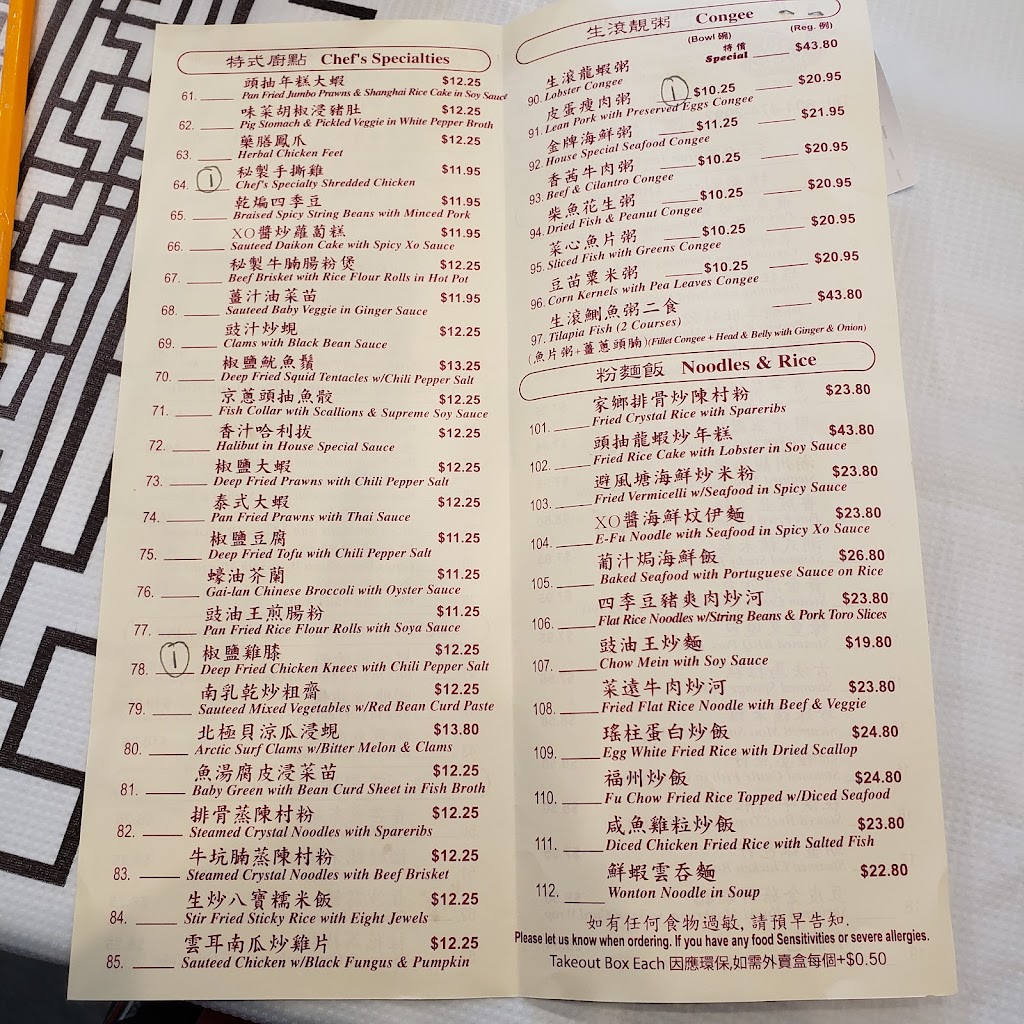 特式廚點 Chef's Specialties
頭抽年糕大蝦 $12.25
61. Pan Fried Jumbo Prawns & Shanghai Rice Cake in Soy Sauce
味菜胡椒浸豬肚 $12.25
62. Pig Stomach & Pickled Veggie in White Pepper Broth
藥膳鳳爪 $12.25
63. Herbal Chicken Feet
秘製手撕雞 $11.95
64. 1 Chef's Specialty Shredded Chicken
乾煸四季豆 $11.95
65. Braised Spicy String Beans with Minced Pork
XO醬炒蘿蔔糕 $11.95
66. Sauteed Daikon Cake with Spicy Xo Sauce
秘製牛腩腸粉煲 $12.25
67. Beef Brisket with Rice Flour Rolls in Hot Pot
薑汁油菜苗 $11.95
68. Sauteed Baby Veggie in Ginger Sauce
豉汁炒蜆 $12.25
69. Clams with Black Bean Sauce
椒鹽魷魚鬚 $13.25
70. Deep Fried Squid Tentacles w/Chili Pepper Salt
京蔥頭抽魚骹 $12.25
71. Fish Collar wtih Scallions & Supreme Soy Sauce
香汁哈利拔 $12.25
72. Halibut in House Special Sauce
椒鹽大蝦 $12.25
73. Deep Fried Prawns with Chili Pepper Salt
泰式大蝦 $12.25
74. Pan Fried Prawns with Thai Sauce
椒鹽豆腐 $11.25
75. Deep Fried Tofu with Chili Pepper Salt
蠔油芥蘭 $11.25
76. Gai-lan Chinese Broccoli with Oyster Sauce
豉油王煎腸粉 $11.25
77. Pan Fried Rice Flour Rolls with Soya Sauce
椒鹽雞膝 $12.25
78. 1 Deep Fried Chicken Knees with Chili Pepper Salt
南乳乾炒粗齋 $12.25
79. Sauteed Mixed Vegetables w/Red Bean Curd Paste
北極貝涼瓜浸蜆 $13.80
80. Arctic Surf Clams w/Bitter Melon & Clams
魚湯腐皮浸菜苗 $12.25
81. Baby Green with Bean Curd Sheet in Fish Broth
排骨蒸陳村粉 $12.25
82. Steamed Crystal Noodles with Spareribs
牛坑腩蒸陳村粉 $12.25
83. Steamed Crystal Noodles with Beef Brisket
生炒八寶糯米飯 $12.25
84. Stir Fried Sticky Rice with Eight Jewels
雲耳南瓜炒雞片 $12.25
85. Sauteed Chicken w/Black Fungus & Pumpkin
生滾靚粥 Congee
(Bowl 碗) (Reg. 例)
生滾龍蝦粥 特價 Special $43.80
90. Lobster Congee
皮蛋瘦肉粥 1 $10.25 $20.95
91. Lean Pork with Preserved Eggs Congee
金牌海鮮粥 $11.25 $21.95
92. House Special Seafood Congee
香茜牛肉粥 $10.25 $20.95
93. Beef & Cilantro Congee
柴魚花生粥 $10.25 $20.95
94. Dried Fish & Peanut Congee
菜心魚片粥 $10.25 $20.95
95. Sliced Fish with Greens Congee
豆苗粟米粥 $10.25 $20.95
96. Corn Kernels with Pea Leaves Congee
生滾鰂魚粥二食 $43.80
97. Tilapia Fish (2 Courses)
(魚片粥+薑蔥頭腩)(Fillet Congee + Head & Belly with Ginger & Onion)
粉麵飯 Noodles & Rice
家鄉排骨炒陳村粉 $23.80
101. Fried Crystal Rice with Spareribs
頭抽龍蝦炒年糕 $43.80
102. Fried Rice Cake with Lobster in Soy Sauce
避風塘海鮮炒米粉 $23.80
103. Fried Vermicelli w/Seafood in Spicy Sauce
XO醬海鮮炆伊麵 $23.80
104. E-Fu Noodle with Seafood in Spicy Xo Sauce
葡汁焗海鮮飯 $26.80
105. Baked Seafood with Portuguese Sauce on Rice
四季豆豬爽肉炒河 $23.80
106. Flat Rice Noodles w/String Beans & Pork Toro Slices
豉油王炒麵 $19.80
107. Chow Mein with Soy Sauce
菜遠牛肉炒河 $23.80
108. Fried Flat Rice Noodle with Beef & Veggie
瑤柱蛋白炒飯 $24.80
109. Egg White Fried Rice with Dried Scallop
福州炒飯 $24.80
110. Fu Chow Fried Rice Topped w/Diced Seafood
咸魚雞粒炒飯 $23.80
111. Diced Chicken Fried Rice with Salted Fish
鮮蝦雲吞麵 $22.80
112. Wonton Noodle in Soup
如有任何食物過敏, 請預早告知.
Please let us know when ordering. If you have any food Sensitivities or severe allergies.
Takeout Box Each 因應環保,如需外賣盒每個+$0.50